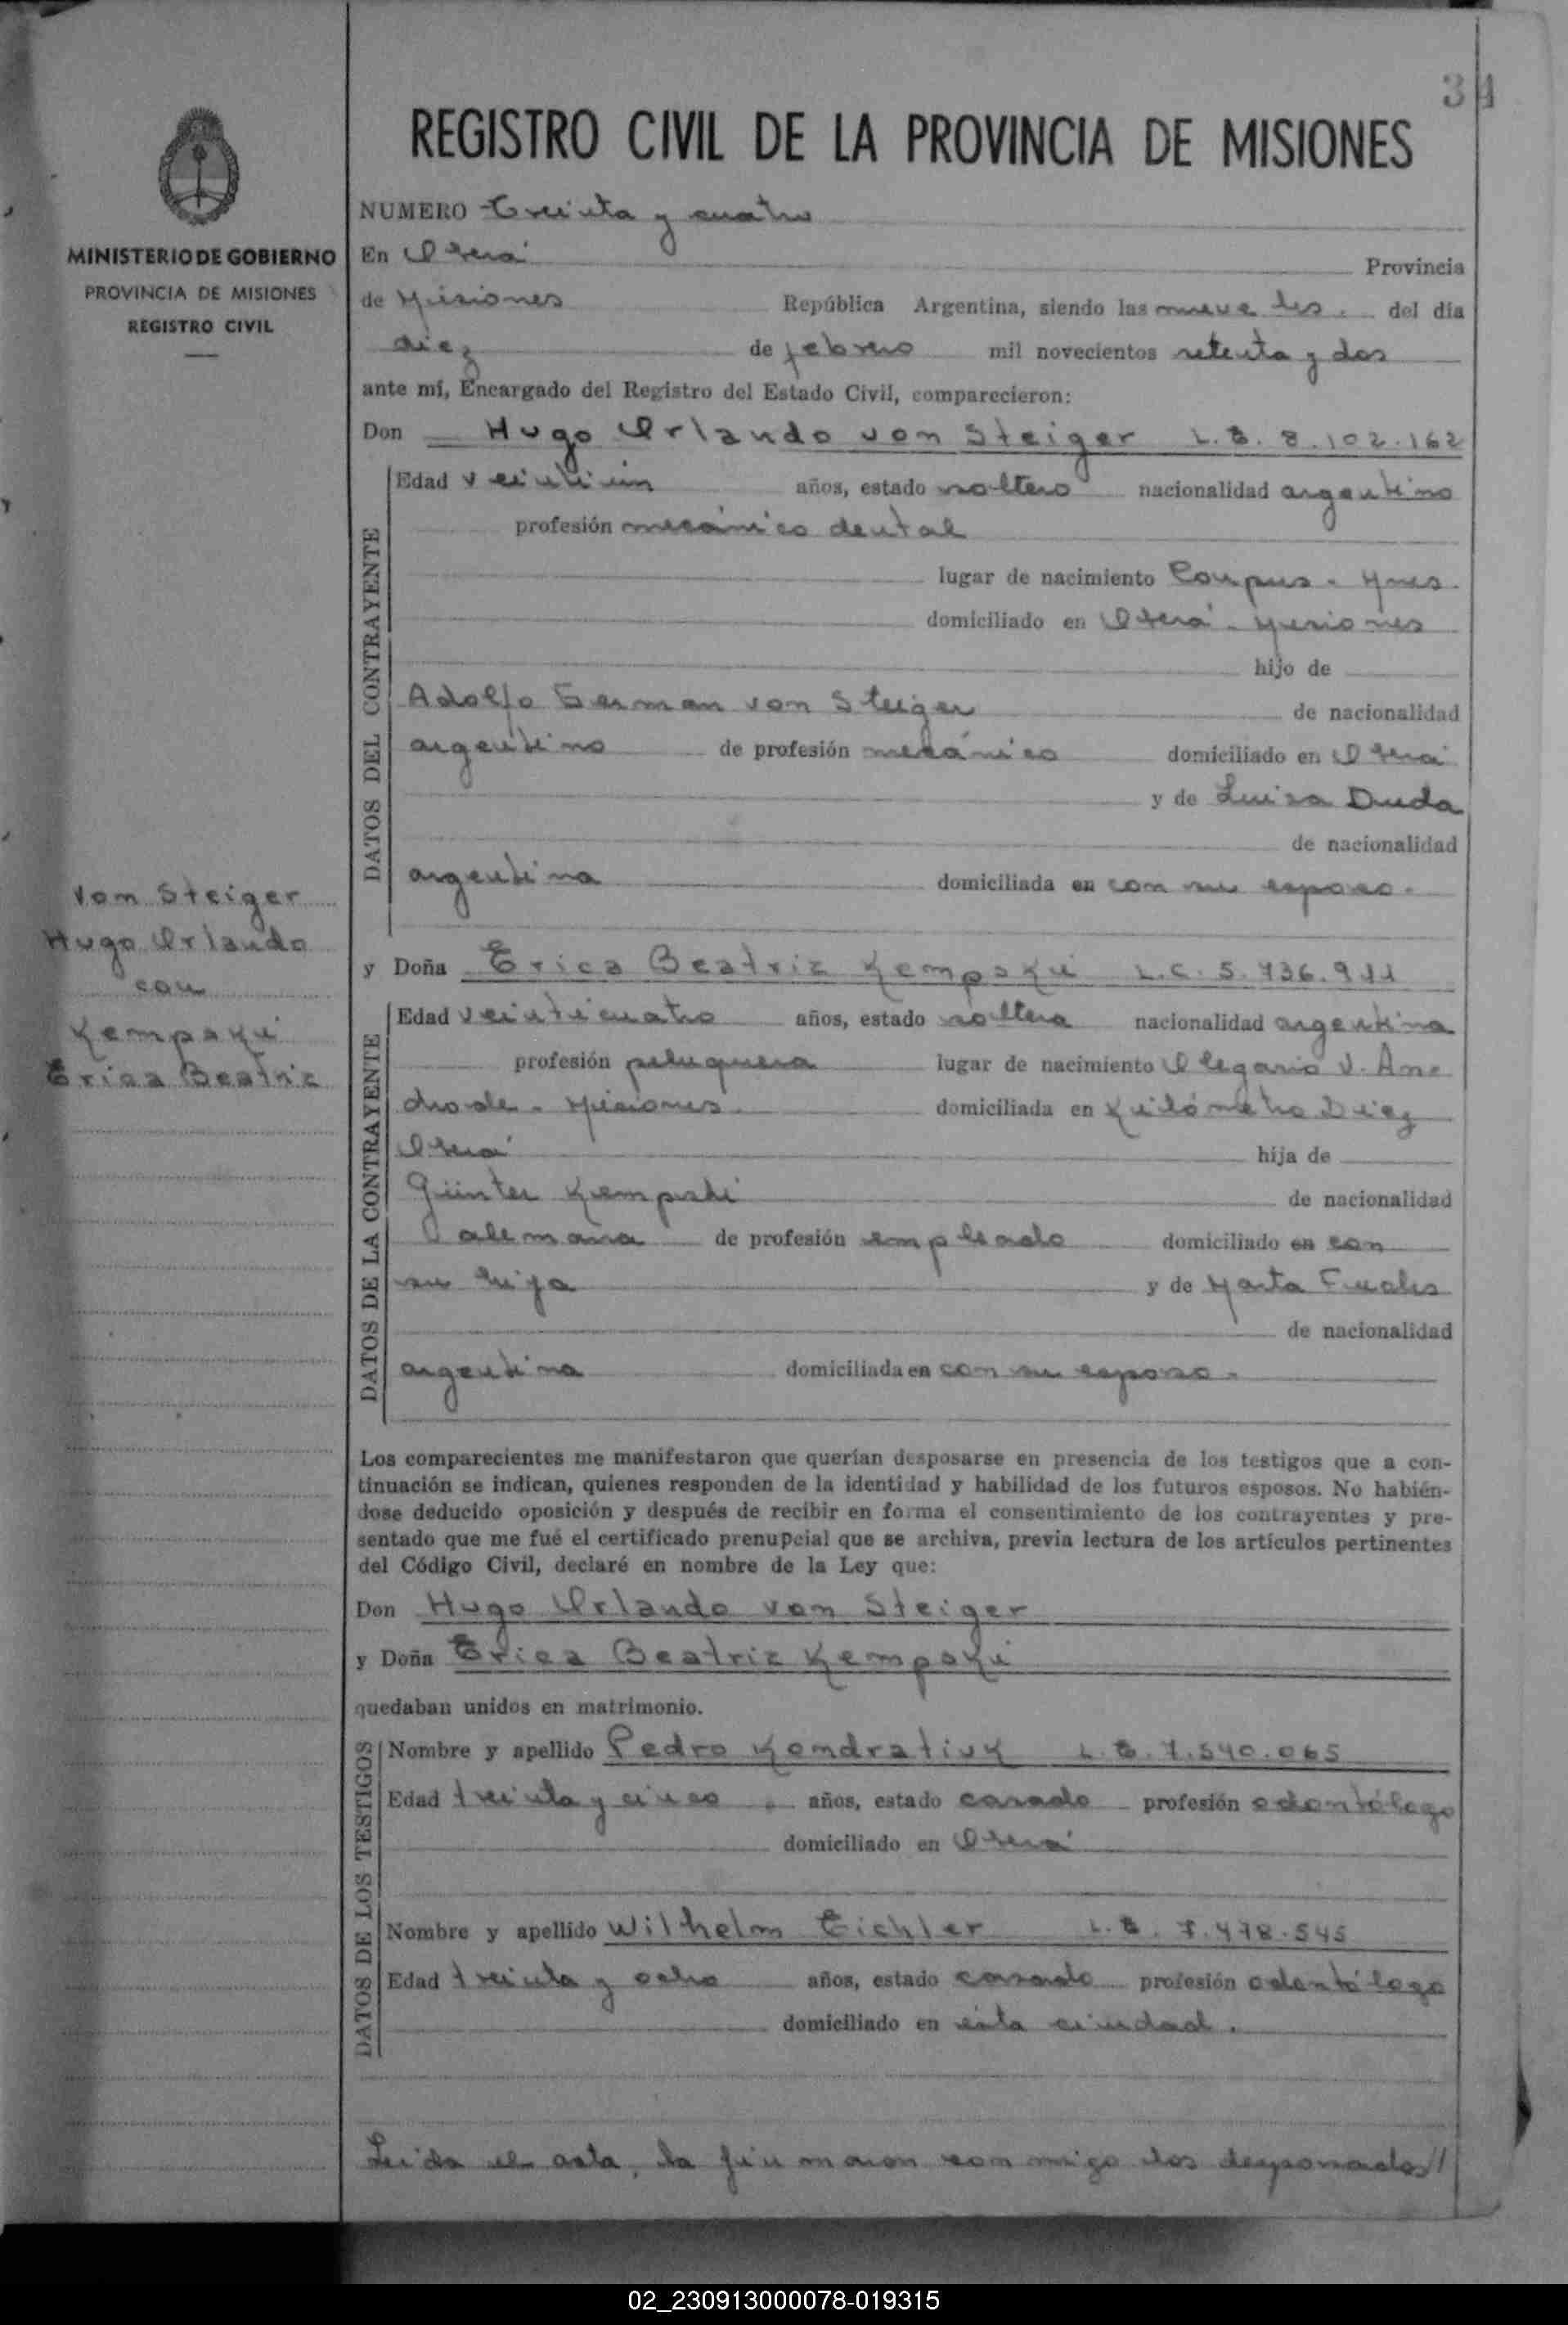 34
REGISTRO CIVIL DE LA PROVINCIA DE MISIONES
MINISTERIO DE GOBIERNO
PROVINCIA DE MISIONES
REGISTRO CIVIL
NUMERO Treinta y cuatro
En Oberá Provincia
de Misiones República Argentina, siendo las nueve hs. del día
diez de febrero mil novecientos setenta y dos
ante mí, Encargado del Registro del Estado Civil, comparecieron:
Don Hugo Orlando von Steiger L.E. 8.102.162
DATOS DEL CONTRAYENTE
Edad veintiún años, estado soltero nacionalidad argentino
profesión mecánico dental
lugar de nacimiento Corpus - Mnes.
domiciliado en Oberá - Misiones
hijo de
Adolfo German von Steiger de nacionalidad
argentino de profesión mecánico domiciliado en Oberá
y de Luisa Duda
de nacionalidad
argentina domiciliada en con su esposo.
von Steiger
Hugo Orlando
con
Kempski
Erica Beatriz
y Doña Erica Beatriz Kempski L.C. 5.736.911
DATOS DE LA CONTRAYENTE
Edad veinticuatro años, estado soltera nacionalidad argentina
profesión peluquera lugar de nacimiento Olegario V. An=
drade - Misiones domiciliada en Kilómetro Diez
Oberá hija de
Günter Kempski de nacionalidad
alemana de profesión empleado domiciliado en con
su hija y de Marta
de nacionalidad
argentina domiciliada en con su esposo.
Los comparecientes me manifestaron que querían desposarse en presencia de los testigos que a con-
tinuación se indican, quienes responden de la identidad y habilidad de los futuros esposos. No habién-
dose deducido oposición y después de recibir en forma el consentimiento de los contrayentes y pre-
sentado que me fué el certificado prenupcial que se archiva, previa lectura de los artículos pertinentes
del Código Civil, declaré en nombre de la Ley que:
Don Hugo Orlando von Steiger
y Doña Erica Beatriz Kempski
quedaban unidos en matrimonio.
DATOS DE LOS TESTIGOS
Nombre y apellido Pedro Kondratiuk L.E. 7.540.065
Edad treinta y cinco años, estado casado profesión odontólogo
domiciliado en Oberá
Nombre y apellido Wilhelm Eichler L.E. 7.478.545
Edad treinta y ocho años, estado casado profesión odontólogo
domiciliado en esta ciudad.
Leída el acta, la firmaron conmigo los desposados//
02_230913000078-019315